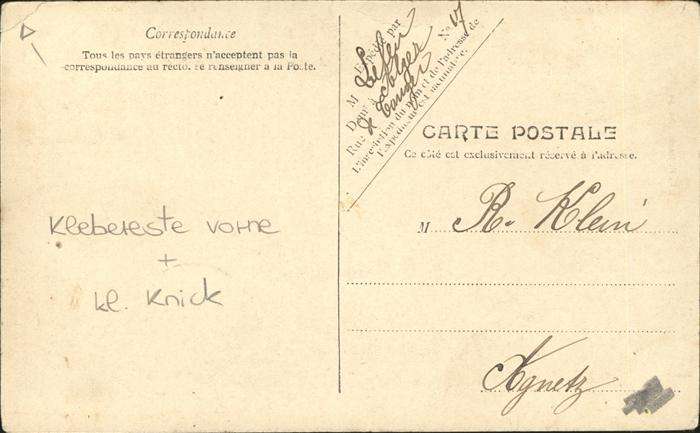 Correspondance
Tous les pays étrangers n'acceptent pas la
correspondance au recto. Se renseigner à la Poste.
Klebereste vorne
+
kl. Knick
Expédié par
M
Demt à
Rue
No 17
L'inscription du nom et de l'adresse de
l'Expéditeur est facultative.
CARTE POSTALE
Ce côté est exclusivement réservé à l'adresse.
M R. Klein
Agnetz